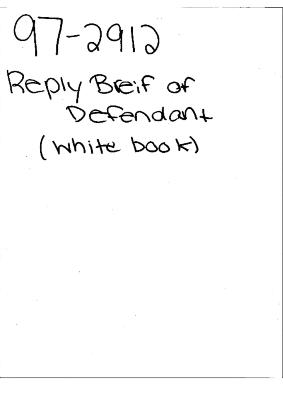 97-2912
Reply Breif of
Defendant
(white book)